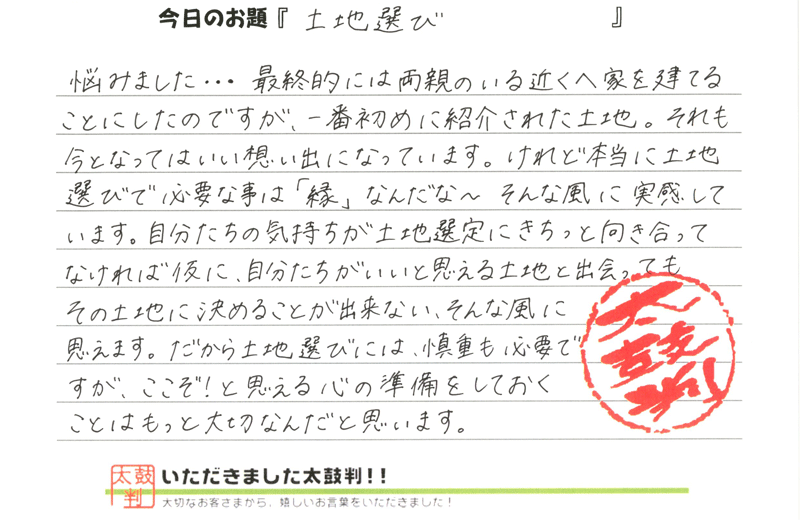 今日のお題『 土地選び 』
悩みました・・・ 最終的には両親のいる近くへ家を建てる
ことにしたのですが、一番初めに紹介された土地。それも
今となってはいい想い出になっています。けれど本当に土地
選びで必要な事は「縁」なんだな～ そんな風に実感して
います。自分たちの気持ちが土地選定にきちっと向き合って
なければ仮に、自分たちがいいと思える土地と出会っても
その土地に決めることが出来ない、そんな風に
思えます。だから土地選びには、慎重も必要で
すが、ここぞ!と思える心の準備をしておく
ことはもっと大切なんだと思います。
太鼓判
太鼓判
いただきました太鼓判!!
大切なお客さまから、嬉しいお言葉をいただきました!